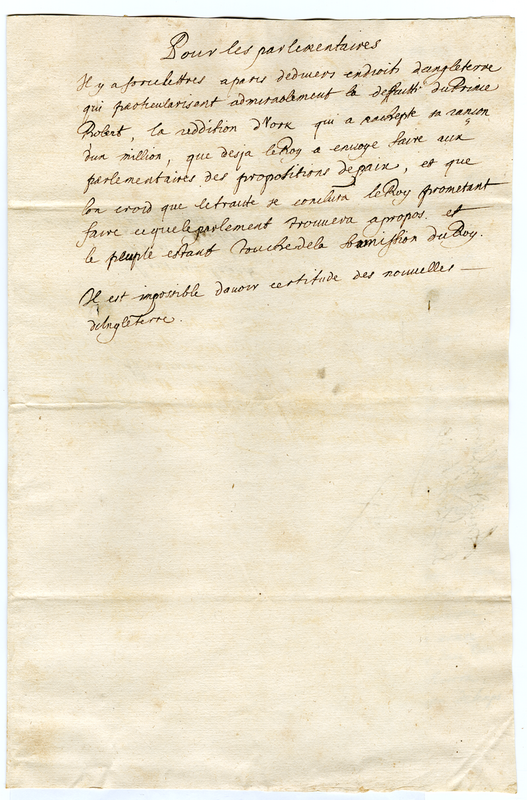 Pour les parlementaires
Il y a force lettres a paris de divers endroits d'angleterre
qui particularisent admirablement la deffaitte du Prince
Robert, la reddition d'York qui a rachepté sa
d'un million, que desja le Roy a envoyé faire aux
parlementaires des propositions de paix, et que
lon croid que le traitté se conclura le Roy prometant
faire ce que le parlement trouvera a propos. et
le peuple estant touché de la soumission du Roy.
Il est impossible davoir certitude des nouvelles —
dAngleterre.